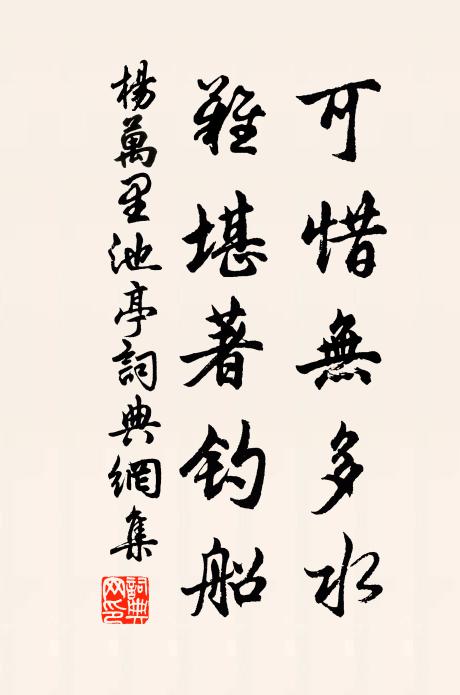 可惜無多水
難堪著釣船
楊萬里池亭詞典網集
詞典網印